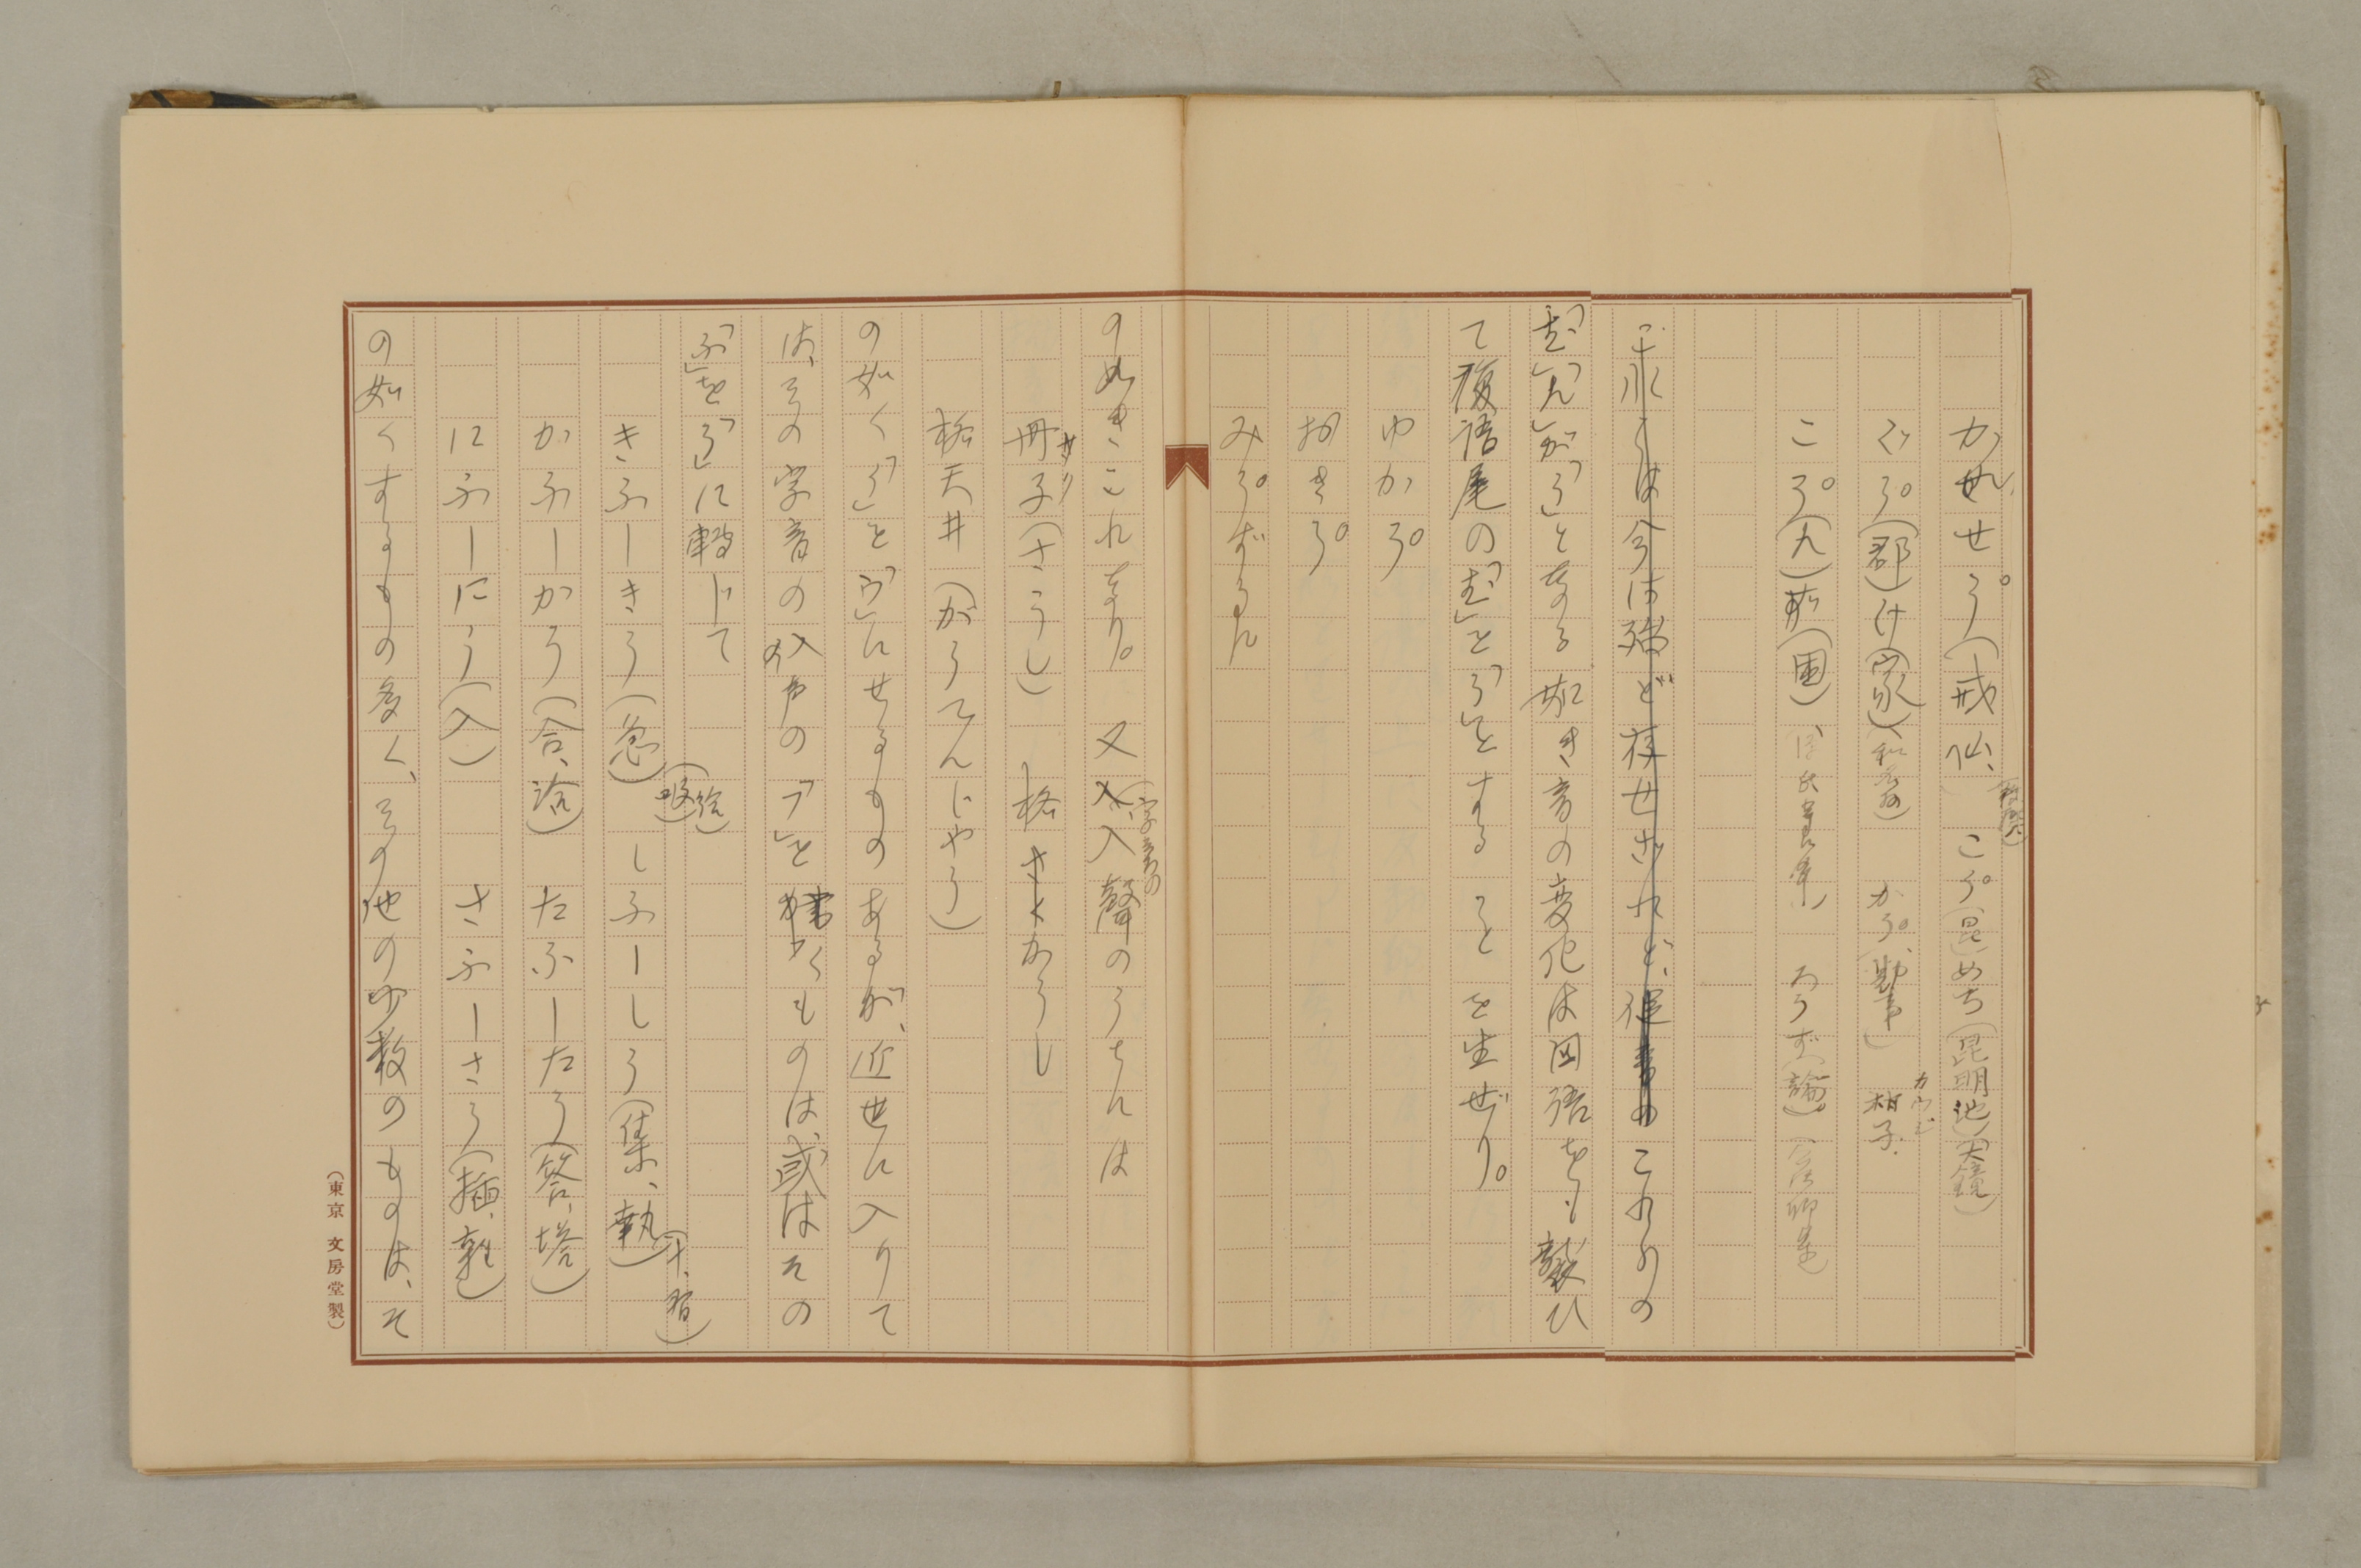 かせう(戒仙、 こう(昆)めち(昆明池)(大鏡)
ぐう(郡)け(家) かう(勘事) 柑子カウじ
こう(九) (困) ろうず(論)
これらは今は殆ど存せざれど、 これらの
「む」「ん」が「う」となる如き音の変化は国語をも襲ひ
て複語尾の「む」を「う」とすることを生ぜり。
ゆかう
おきう
みうずるに
の如きこれなり。 又字音の入聲のうちには
冊子(さうし) 格かうし
格天井(がうてんじやう)
の如く「う」を「ウ」にせるものあるが、近世に入りて
は、その字音の入声の「フ」を書くものは、或はその
「ふ」を「う」に轉じて
きふーきう(急) しふーしう(集、執)(十、習)
かふーかう(合、洽) たふーたう(答、塔)
にふーにう(入) さふーさう(插、雜)
の如くするもの多く、その他の少数のものは、そ
(東京 文房堂製)